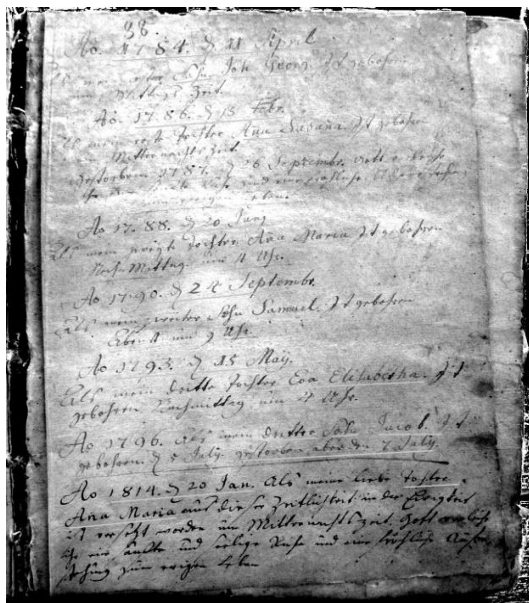 98.
Ao 1784. D 11 April
Als mein erster Sohn Joh Georg Ist gebohren
um Mittags Zeit.
Ao. 1786. D 15 Febr.
Als mein erste Tochter Ana Susana. Ist gebohren
Mitternachts Zeit.
gestorben 1787. D 26 Septembr. Gott
Ihr Ruhe und eine fröhliche
zum ewigen leben.
Ao 17.88. D 20 Juny
Als mein Tochter Ana Maria Ist gebohren
Nach Mittag um 11 Uhr.
Ao 1790. D 24 Septembr.
Als mein zweiter Sohn Samuel. Ist gebohren
um 9 Uhr.
Ao 1793. D 15 May.
Als mein dritte Tochter Eva Elisabetha. Ist
gebohren Nachmittag um 4 Uhr.
Ao 1796. Als mein dritter Sohn Jacob Ist
gebohren D 5 July. gestorben aber den 7 July.
Ao 1814. D 20 Jan. Als meine liebe Tochter
Ana Maria aus dieser Zeitlichkeit in der Ewigkeit
ist versetzt worden um Mitternachts Zeit. Gott verleihe
Ihr eine sanfte und selige Ruhe und eine fröhliche Aufer
stehung zum ewigen Leben